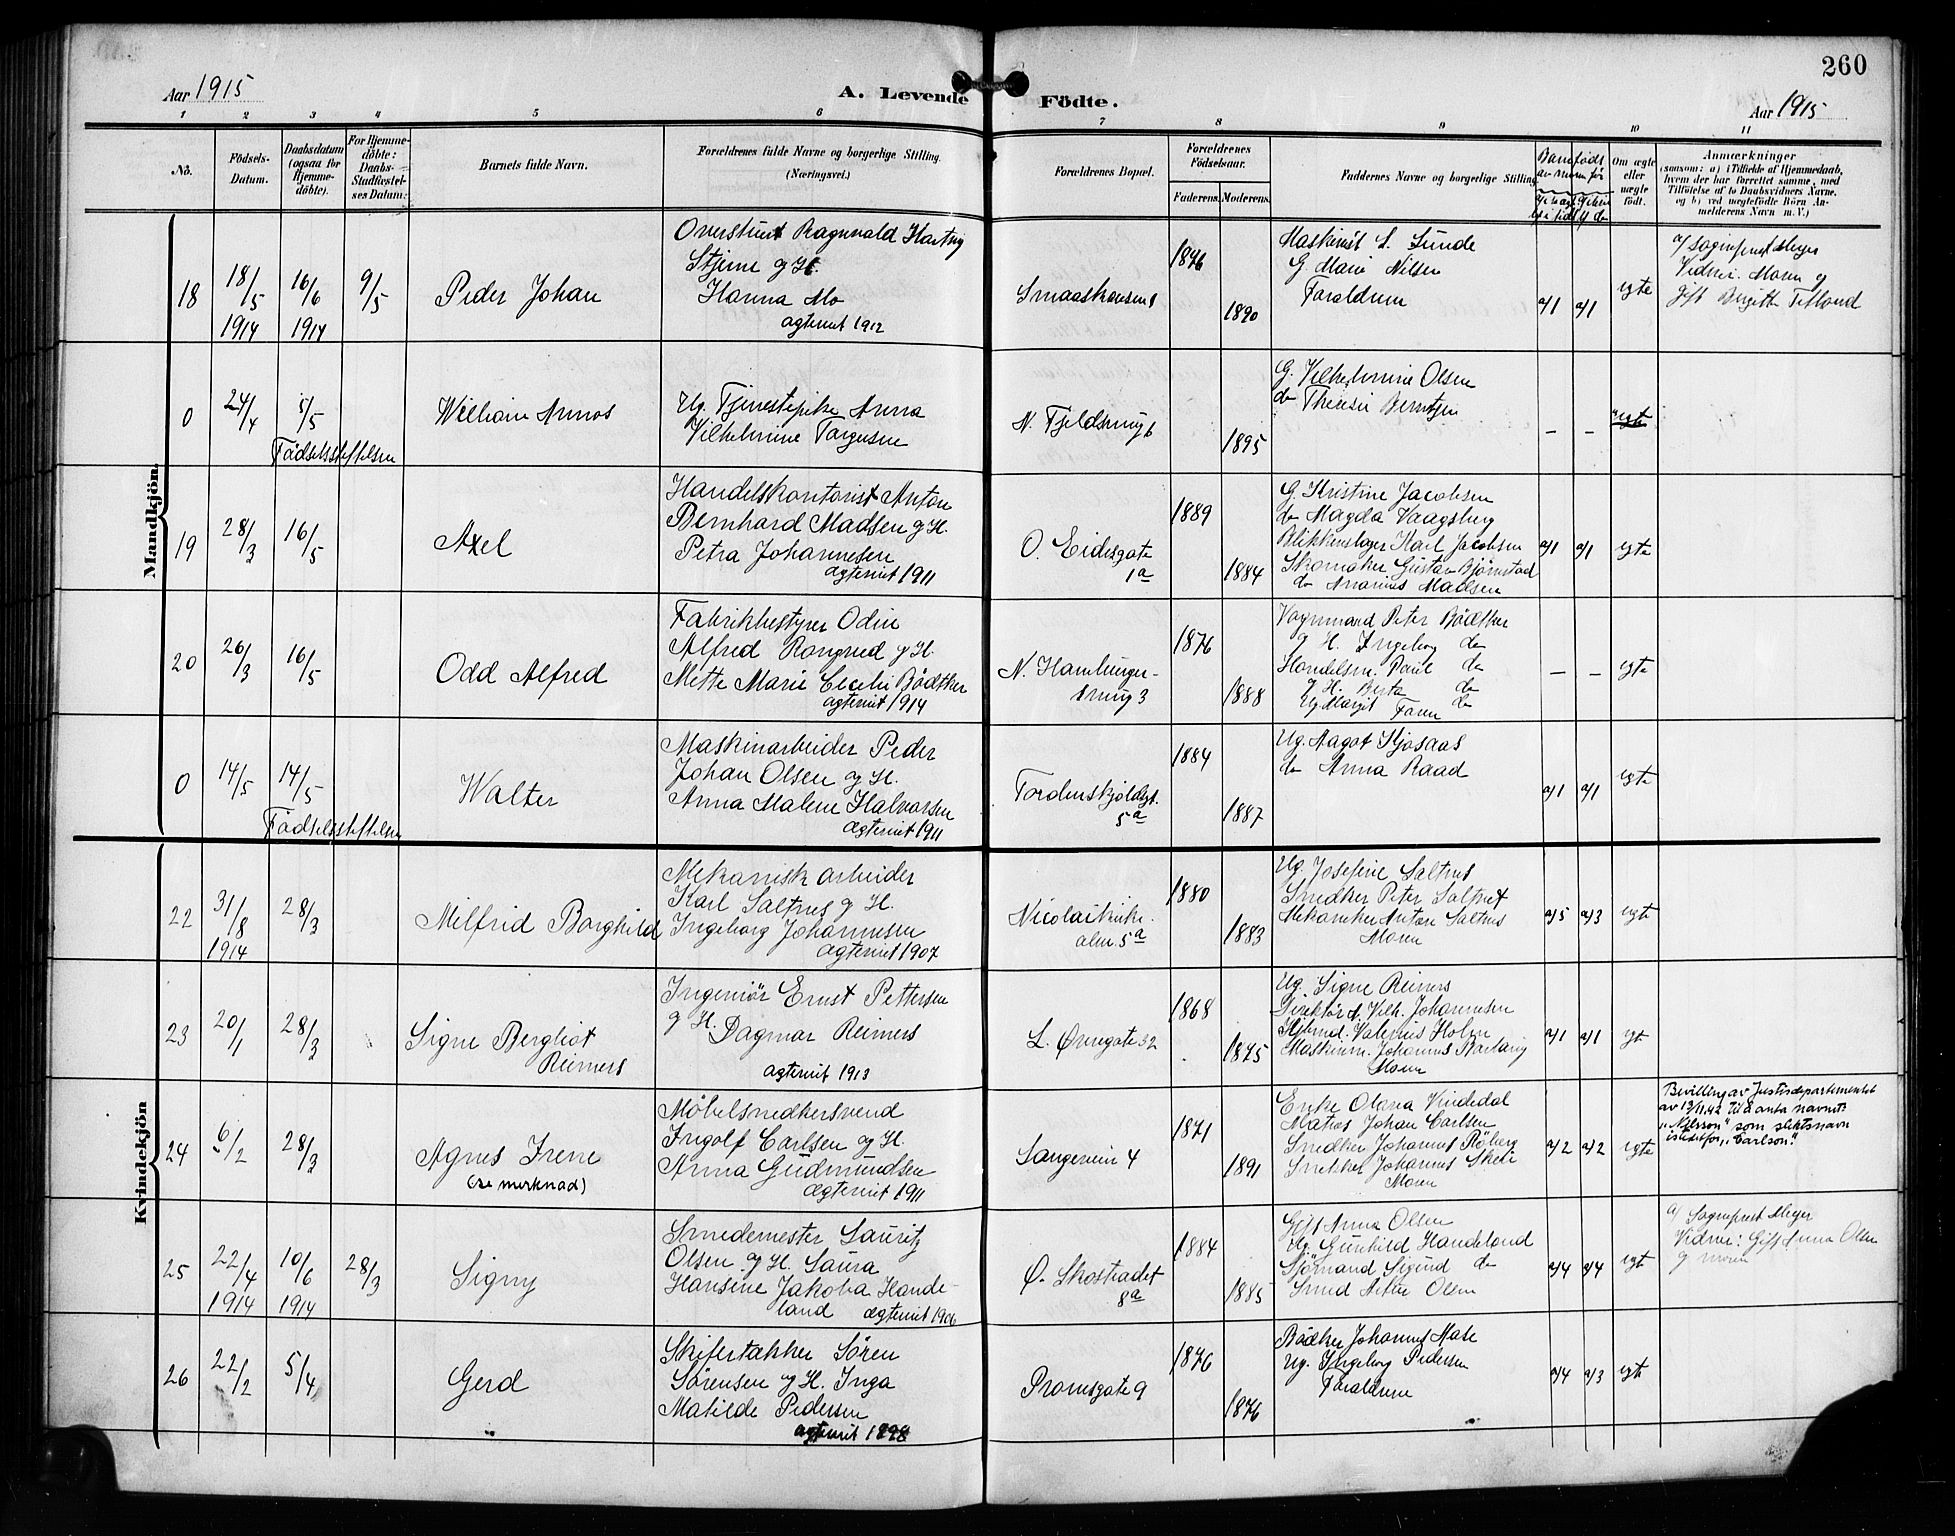 260
Aar 1915
A. Levende Födte.
Aar 1915
1 2 3 4 5 6 7 8 9 10 11
No.
Födsels-
Datum.
Daabsdatum
(ogsaa for
Hjemme-
döbte).
For Hjemme-
döbte:
Daabs-
Stadfæstel-
ses Datum.
Barnets fulde Navn.
Forældrenes fulde Navne og borgerlige Stilling.
(Næringsvei.)
Forældrenes Bopæl.
Forældrenes
Födselsaar.
Faderens.
Moderens.
Faddernes Navne og borgerlige Stilling
Om ægte
eller
uægte
födt.
Anmærkninger
(saasom: a) i Tilfælde af Hjemmedaab,
hvem der har forrettet samme, med
Tilföielse af to Daabsvidners Navne,
og b) ved uægtefödte Börn An-
melderens Navn m. V.)
Mandkjön
18
18/5
1914
16/6
1914
9/5
Peder Johan
Ragnvald Hartvig
Stjerne g H.
Hanna Mo
ægteviet 1912
1876
1890
Maskinist S. Sunde
G. Marie Nilsen
Forældrene
a/1 a/1
egte
a/ Sogneprest Meyer
Vidner: Moren og
gift Birgitte Tefland
0
24/4
5/5
Födselsstiftelsen
William Annos
Ug. Tjenestepike Anna
Vilhelmine Torgersen
N. Fjeldsmug 6
1895
G. Vilhelmine Olsen
do Therese Berntsen
– –
uegte
19
28/3
16/5
Axel
Handelskontorist Anton
Bernhard Madsen g H.
Petra Johannesen
ægteviet 1911
O. Eidesgate
1a
1889
1884
G. Kristine Jacobsen
do Magda Vaagsberg
Blikkenslager Karl Jacobsen
Skomaker Gustav Bjørnstad
do Anarius Madsen
a/1 a/1
egte
20
26/3
16/5
Odd Alfred
Fabrikbestyrer Odin
Alfred Rongved g H.
Mette Marie Cecilie Bödtker
ægteviet 1914
N. Hamburger-
smug 3
1876
1888
Vognmand Peter Bödtker
g H. Ingeborg do
Handelsm. Paul do
g H. Berta do
Ug Margit do
Faren
– –
egte
0
14/5
14/5
Födselsstiftelsen
Walter
Maskinarbeider Peder
Johan Olsen og H.
Anna Malene Halvorsen
ægteviet 1911
Tordenskjoldsgt.
5a
1884
1887
Ug. Aagot Hjosaas
do Anna Raad
a/1 a/1
egte
Kvindekjön
22
31/8
1914
28/3
Milfrid Borghild
Mekanisk arbeider
Karl Saltnes g H.
Ingeborg Johannesen
ægteviet 1907
Nicolaikirke-
alm. 5a
1880
1883
Ug. Josefine Saltnes
Snedker Peter Saltnes
Mekaniker Anton Saltnes
Moren
a/5 a/3
egte
23
20/1
28/3
Signe Bergliot
Reimers
Ingeniör Ernst Pettersen
g H. Dagmar Reimers
ægteviet 1913
L. Øvregate 32
1868
1875
Ug. Signe Reimers
Direktör A. Vilh. Johannesen
Valerius Holm
Maskinm. Johannes
Moren
a/1 a/1
egt
24
6/2
28/3
Agnes Irene
(se merknad)
Møbelsnedkersvend
Ingolf Carlsen og H.
Anna Gudmundsen
ægteviet 1911
Langeveien 4
1871
1891
Enke Olava Vindedal
Matros Johan Carlsen
Snedker Johannes Röberg
Snekker Johannes Skeie
Moren
a/2 a/2
egte
Bevilling av Justisdepartementet
av 13/11.42 til å anta navnet
"Nilsson" som slektsnavn
istedetfor "Carlson".
25
22/4
1914
10/6
1914
28/3
Signy
Smedemester Lauritz
Olsen og H. Laura
Hansine Jakoba Hande-
land ægteviet 1906
Ø. Skostrædet
8a
1884
1885
Gift Anna Olsen
Ug. Gunhild Handeland
Sjømand Sigurd do
Smed Olsen
a/4 a/4
egt
a/ Sogneprest Meyer
Vidner: Gift Anna Olsen
g moren
26
22/2
5/4
Gerd
Skifertækker Sören
Sörensen og H. Inga
Matilde Pedersen
ægteviet 1898
Promsgate 9
1876
1876
Bödker Johannes
Ug. Ingeborg Pedersen
Forældrene
a/4 a/3
egt